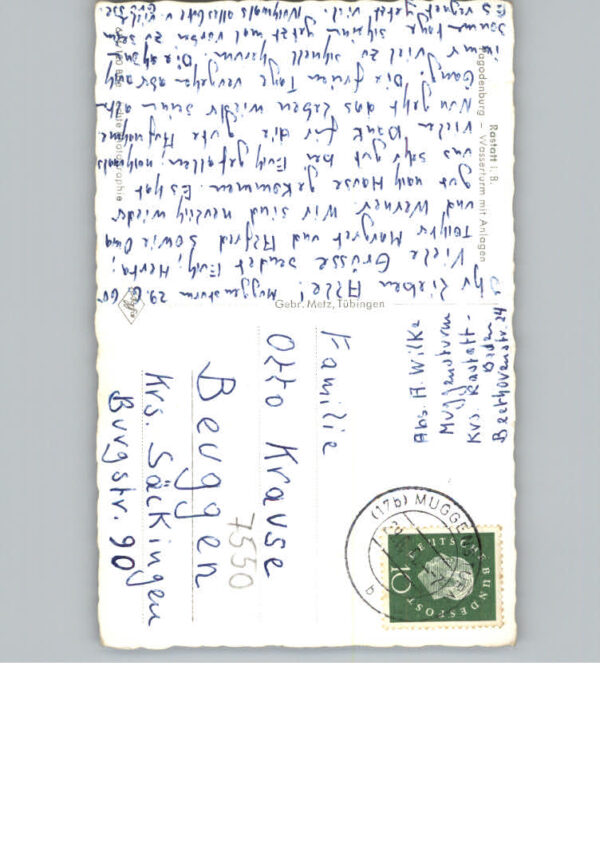 Muggensturm 29. 6. 60
Ihr lieben Alle!
Viele Grüsse sendet Euch, Herta,
Margret und sowie Oma
und Werner. Wir sind neulich wieder
gut nach Hause gekommen. Es hat
uns sehr gut bei Euch gefallen, nochmals
vielen Dank für die gute Aufnahme
Nun geht das Leben wieder seinen alten
Gang. Die freien Tage vergehen aber auch
immer viel zu schnell herum. Die schönen
jetzt mal vorbei zu sein
Es regnet jetzt viel. Nochmals alles Gute u. viele Grüsse.
Rastatt i. B.
Pagodenburg – Wasserturm mit Anlagen
Gebr. Metz, Tübingen
Abs. A. Wilke
Muggensturm
Krs. Rastatt -
Baden
Beethovenstr. 24
(17b) MUGGENS
DEUTSCHE BUNDESPOST
10
Familie
Otto Krause
7550
Beuggen
Krs. Säckingen
Burgstr. 90